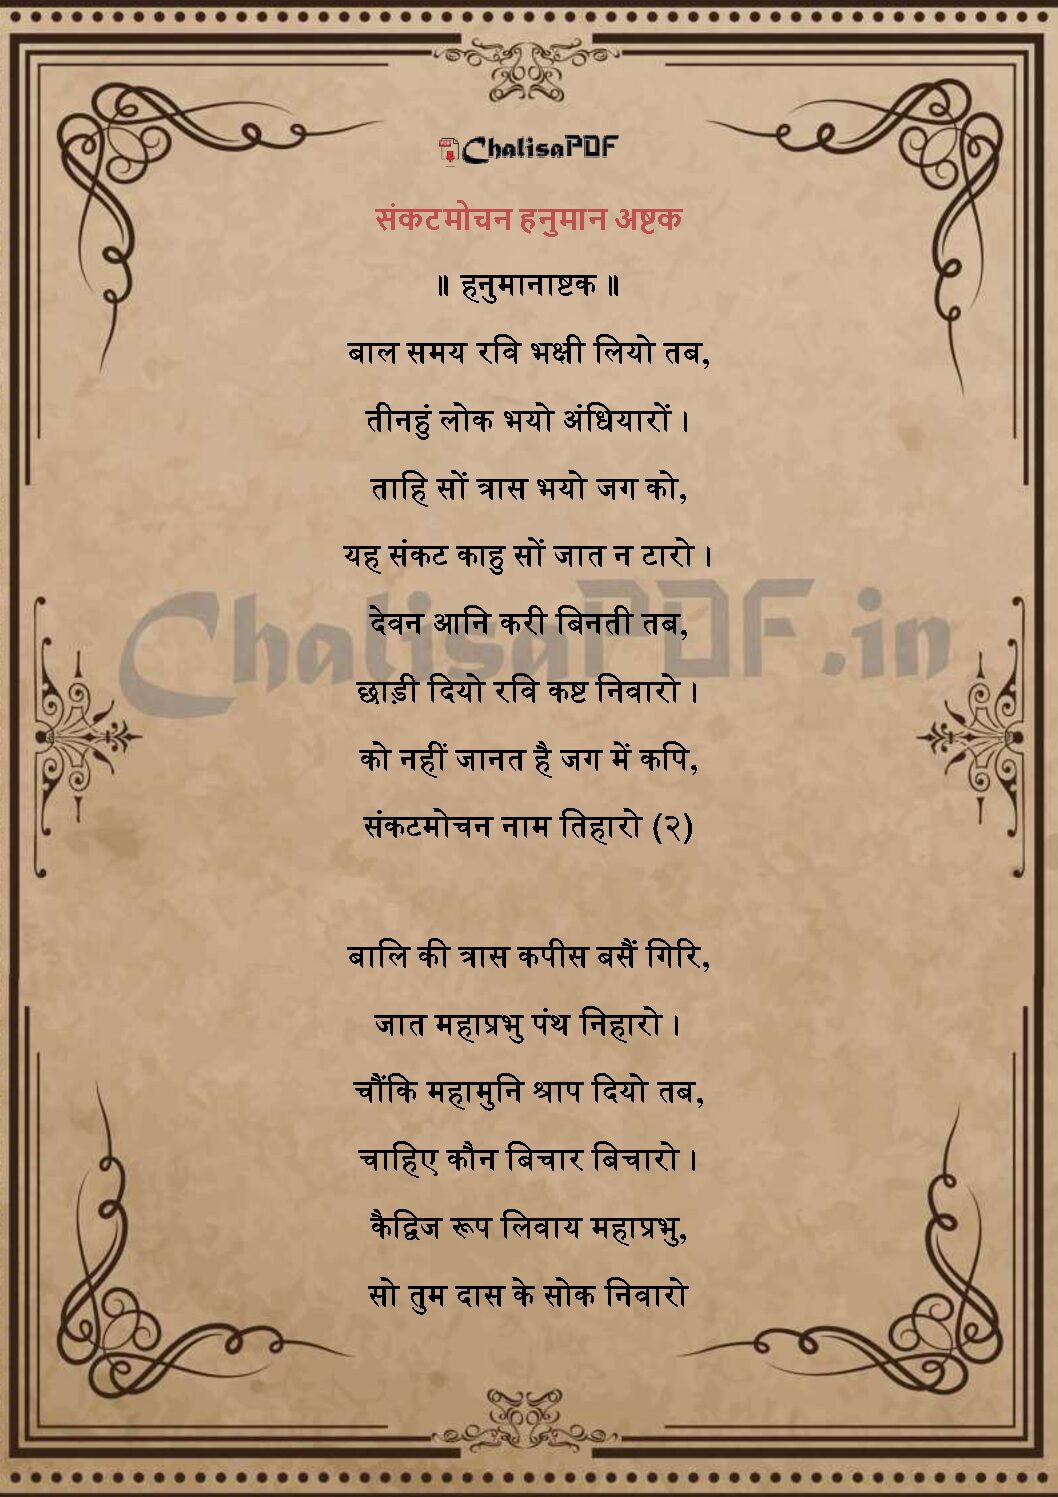 ChalisaPDF
संकटमोचन हनुमान अष्टक
॥ हनुमानाष्टक ॥
बाल समय रवि भक्षी लियो तब,
तीनहुं लोक भयो अंधियारों ।
ताहि सों त्रास भयो जग को,
यह संकट काहु सों जात न टारो ।
देवन आनि करी बिनती तब,
छाड़ी दियो रवि कष्ट निवारो ।
को नहीं जानत है जग में कपि,
संकटमोचन नाम तिहारो (२)
बालि की त्रास कपीस बसैं गिरि,
जात महाप्रभु पंथ निहारो ।
चौंकि महामुनि श्राप दियो तब,
चाहिए कौन बिचार बिचारो ।
कैद्विज रूप लिवाय महाप्रभु,
सो तुम दास के सोक निवारो
ChalisaPDF.in